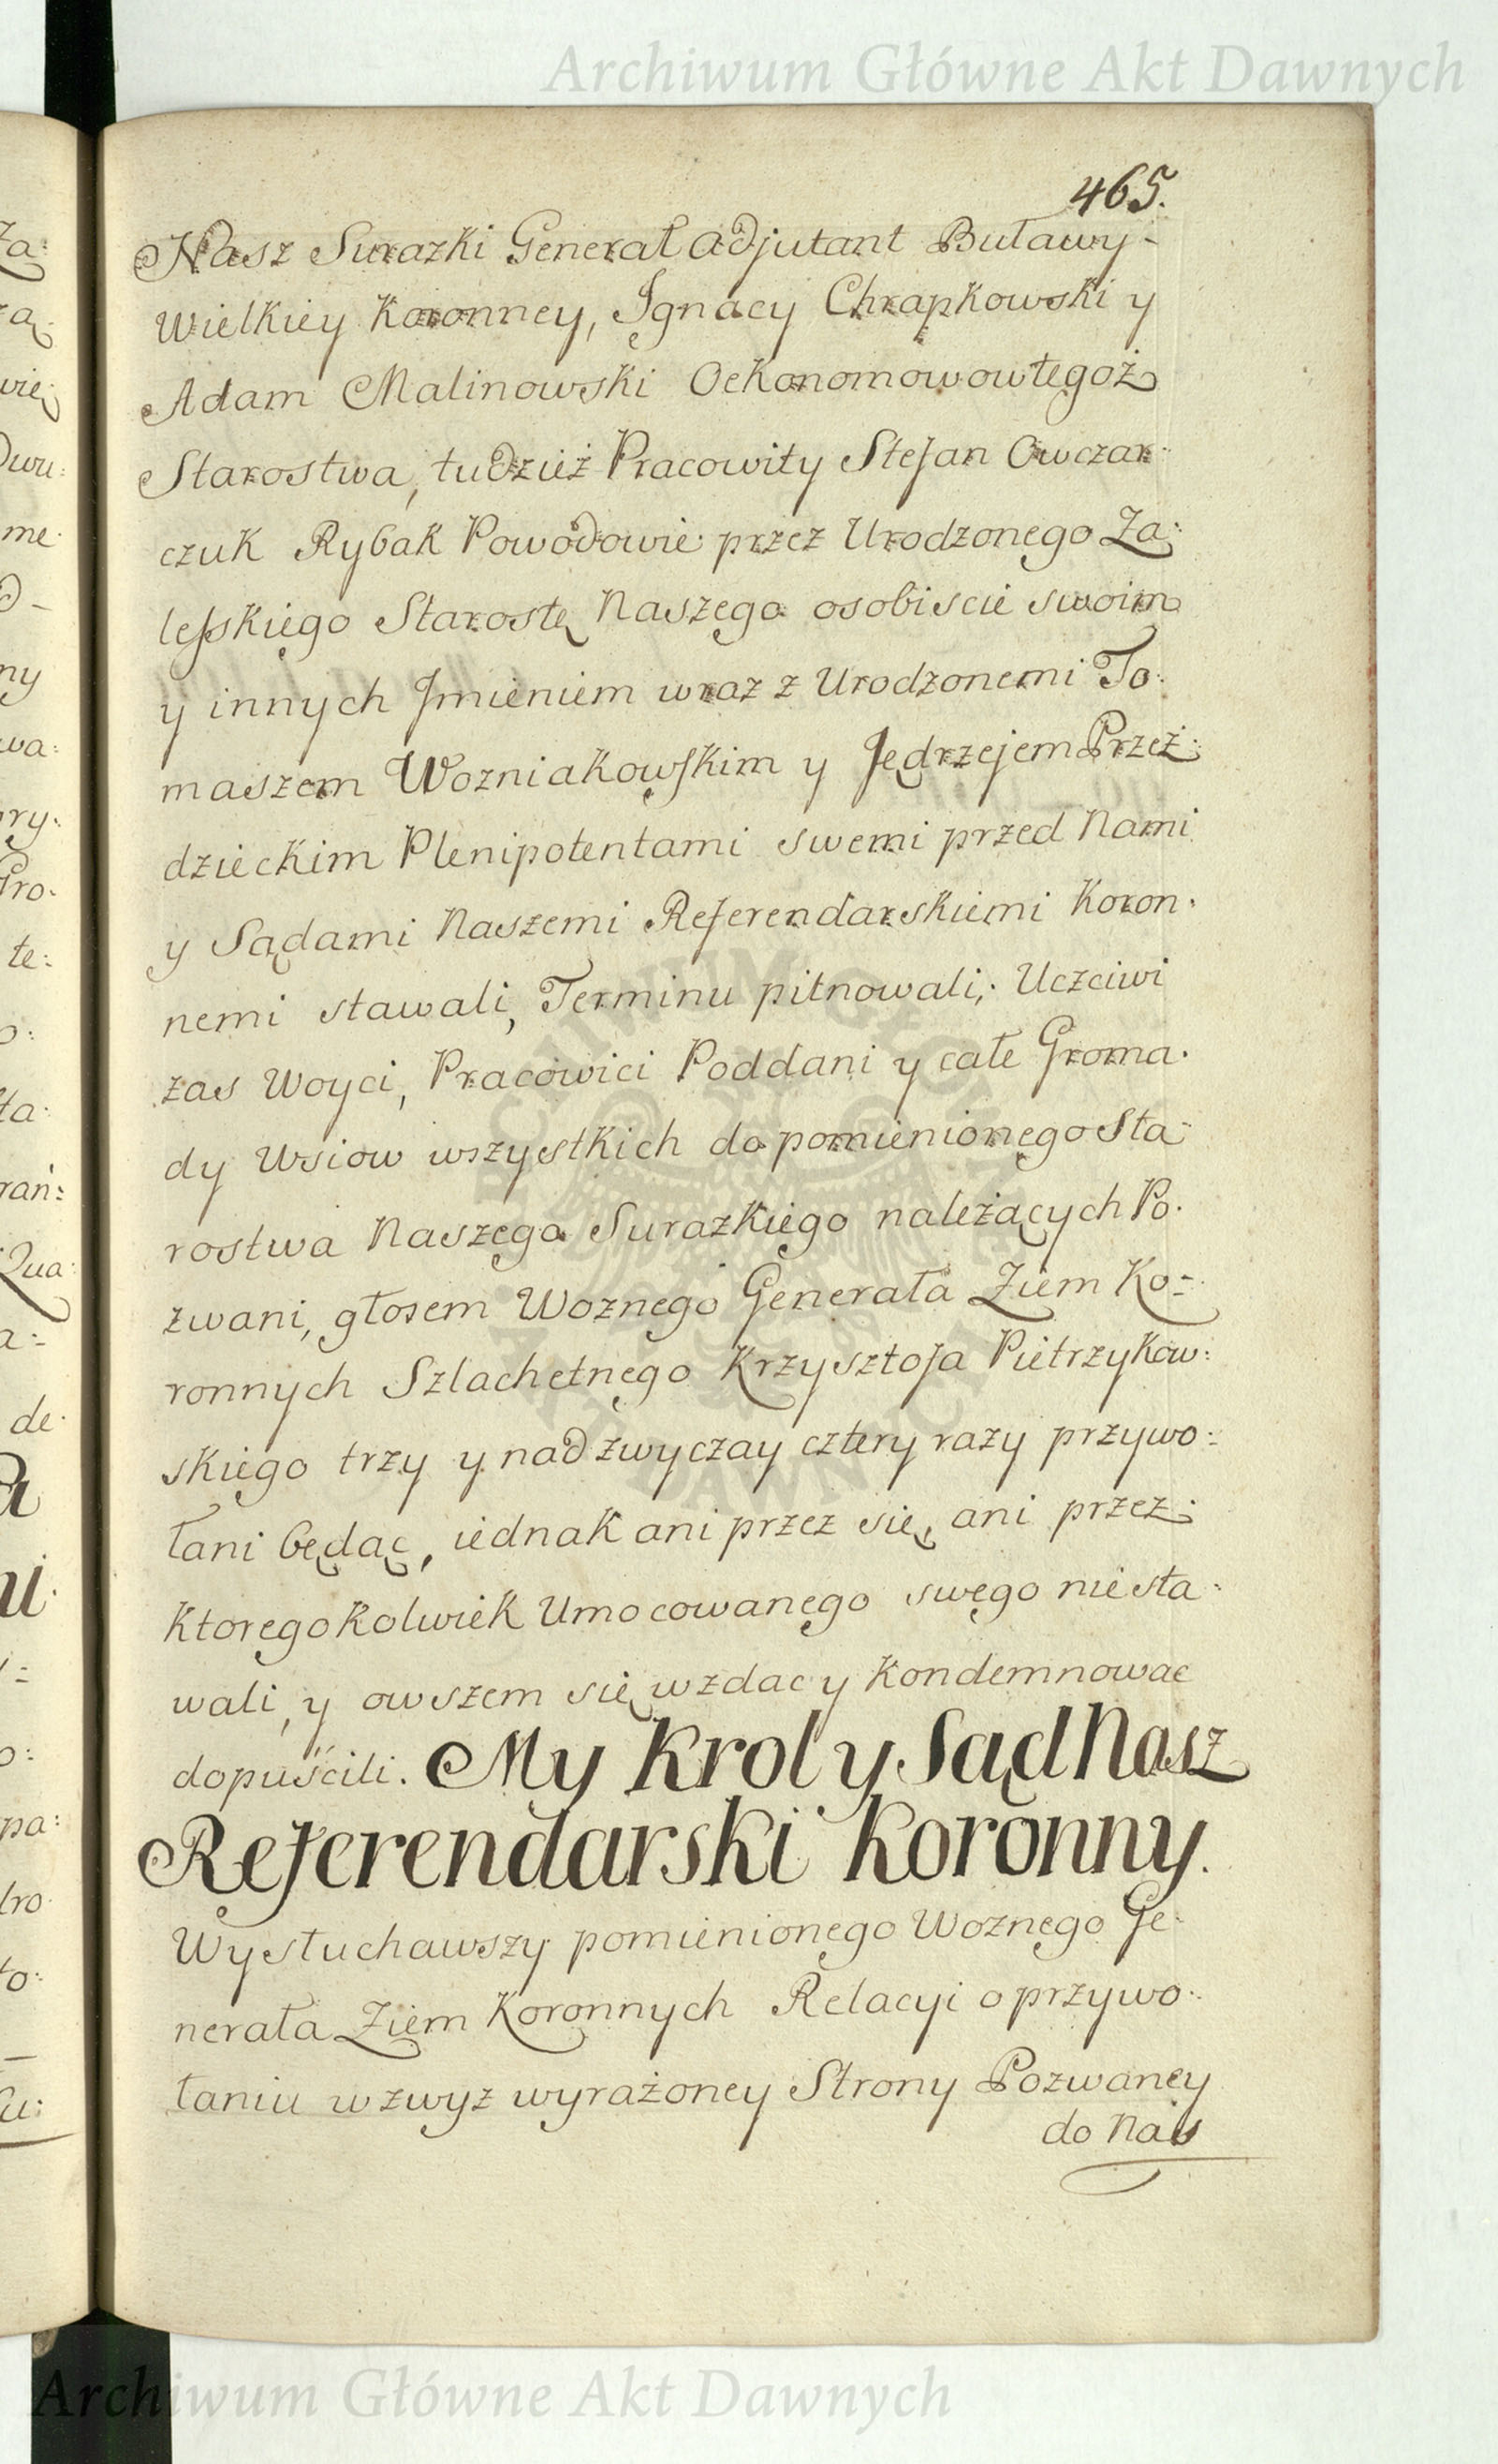 Archiwum Główne Akt Dawnych
465.
Nasz Surazki Generał Adjutant Buławy-
Wielkiey Koronney, Ignacy Chrapkowski y
Adam Malinowski Oekonomowow tegoż
Starostwa, tudzież Pracowity Stefan Owczar-
czuk Rybak Powodowie przez Urodzonego Za:
lesskiego Starostę Naszego osobiscie swoim
y innych Jmieniem wraz z Urodzonemi To:
maszem Wozniakowskim y Jędrzejem Przez:
dzieckim Plenipotentami swemi przed Nami
y Sądami Naszemi Referendarskiemi Koron:
nemi stawali, Terminu pitnowali; Uczciwi
zas Woyci, Pracowici Poddani y całe Groma:
dy Wsiow wszystkich do pomienionego Sta-
rostwa Naszego Surazkiego należących Po:
zwani, głosem Woznego Generała Ziem Ko=
ronnych Szlachetnego Krzysztofa Pietrzykow:
skiego trzy y nad zwyczay cztery razy przywo:
łani będąc, iednak ani przez się, ani przez:
ktoregokolwiek Umocowanego swego niesta:
wali, y owszem się wzdac y Kondemnowac
dopuścili. My Krol y Sąd Nasz
Referendarski Koronny.
Wysłuchawszy pomienionego Woznego Ge:
nerała Ziem Koronnych Relacyi o przywo:
łaniu wzwyz wyrażoney Strony Pozwaney
do Nas
Archiwum Główne Akt Dawnych